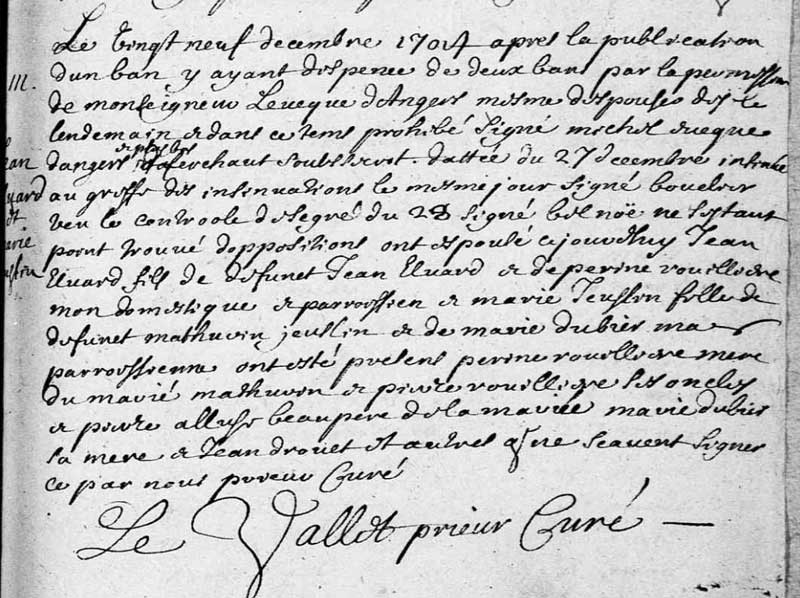 Le vingt neuf decembre 1704 apres la publication
dun ban y ayant dispence de deux bans par la permission
de monseigneur Leveque d'Angers mesme despouser des le
lendemain & dans ce tems prohibé signé michel eveque
dangers & plus bas soubs dattée du 27 decembre insinué
au greffe des insinuations le mesme jour signé boucler
veu le controole de segré du 28 signé belnoë ne sestant
point trouvé doppositions ont espousé ce jourdhuy Jean
Eluard fils de defunct Jean Eluard & de perine
mon domestique & parroissien & marie Jeuslin fille de
defunct mathurin jeuslin & de marie dubier ma
parroissienne ont esté presens perine mere
du marié mathurin & pierre ses oncles
& pierre beaupere de la mariée marie dubier
sa mere & Jean drouet et autres qui ne scavent signer
ce par nous prieur Curé
Le Vallet prieur Curé
III.
Jean
Eluard
et
marie
Jeuslin